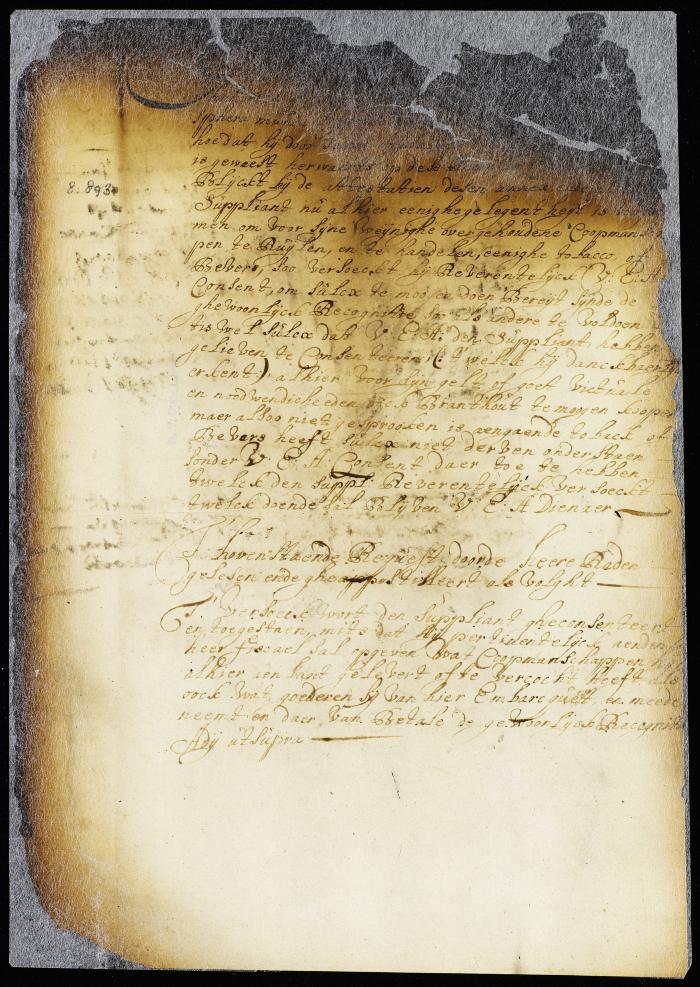 hoe dat hij door
is geweest herwaerts op dese
8. 893
Blijckt bij de attestatien desen annex
Suppliant nu alhier eenighe gelegent heyt is
men om voor sijne Weynighe overgehoudene Coopmansc
pen te Ruylen, en te handelen, eenighe tobacco, of
Bevers, soo versoeckt hij Reverentelijck V. E. A.
Consent, om sulcx te mogen doen Bereyt sijnde de
ghewoonlijck Recognitie
tis wel sulcx dat V. E. A. den Suppliant hebben
gelieven te Consenteeren (t welck hij danckbaerlijck
erkent) alhier voor sijn gelt of goet victualie
en nodwendicheeden Branthout te mogen koopen
maer alsoo niet gesprooken is aengaende toback of
Bevers heeft sulcx niet derven onderstaen
sonder V. E. A. Consent daer toe te hebben
twelck den suppl. Reverentelijck versoeckt
twelck doende sal Blijven V. E. A Dienaer
bovenstaende Requeste doorde Heere Raden
gelesen ende gheappostilleert als volght
T' versoeck wort den Suppliant gheconsenteert
en toegestaen, mits dat hij pertinentelijck aenden
heer fiscael sal opgeven Wat Coopmanschappen hij
alhier aen lant gelevert ofte vercocht heeft als
oock wat goederen hij van hier Embarcqueert, en meede
neemt en daer van Betale de gewoonlijck Recognitie
Adij utsupra